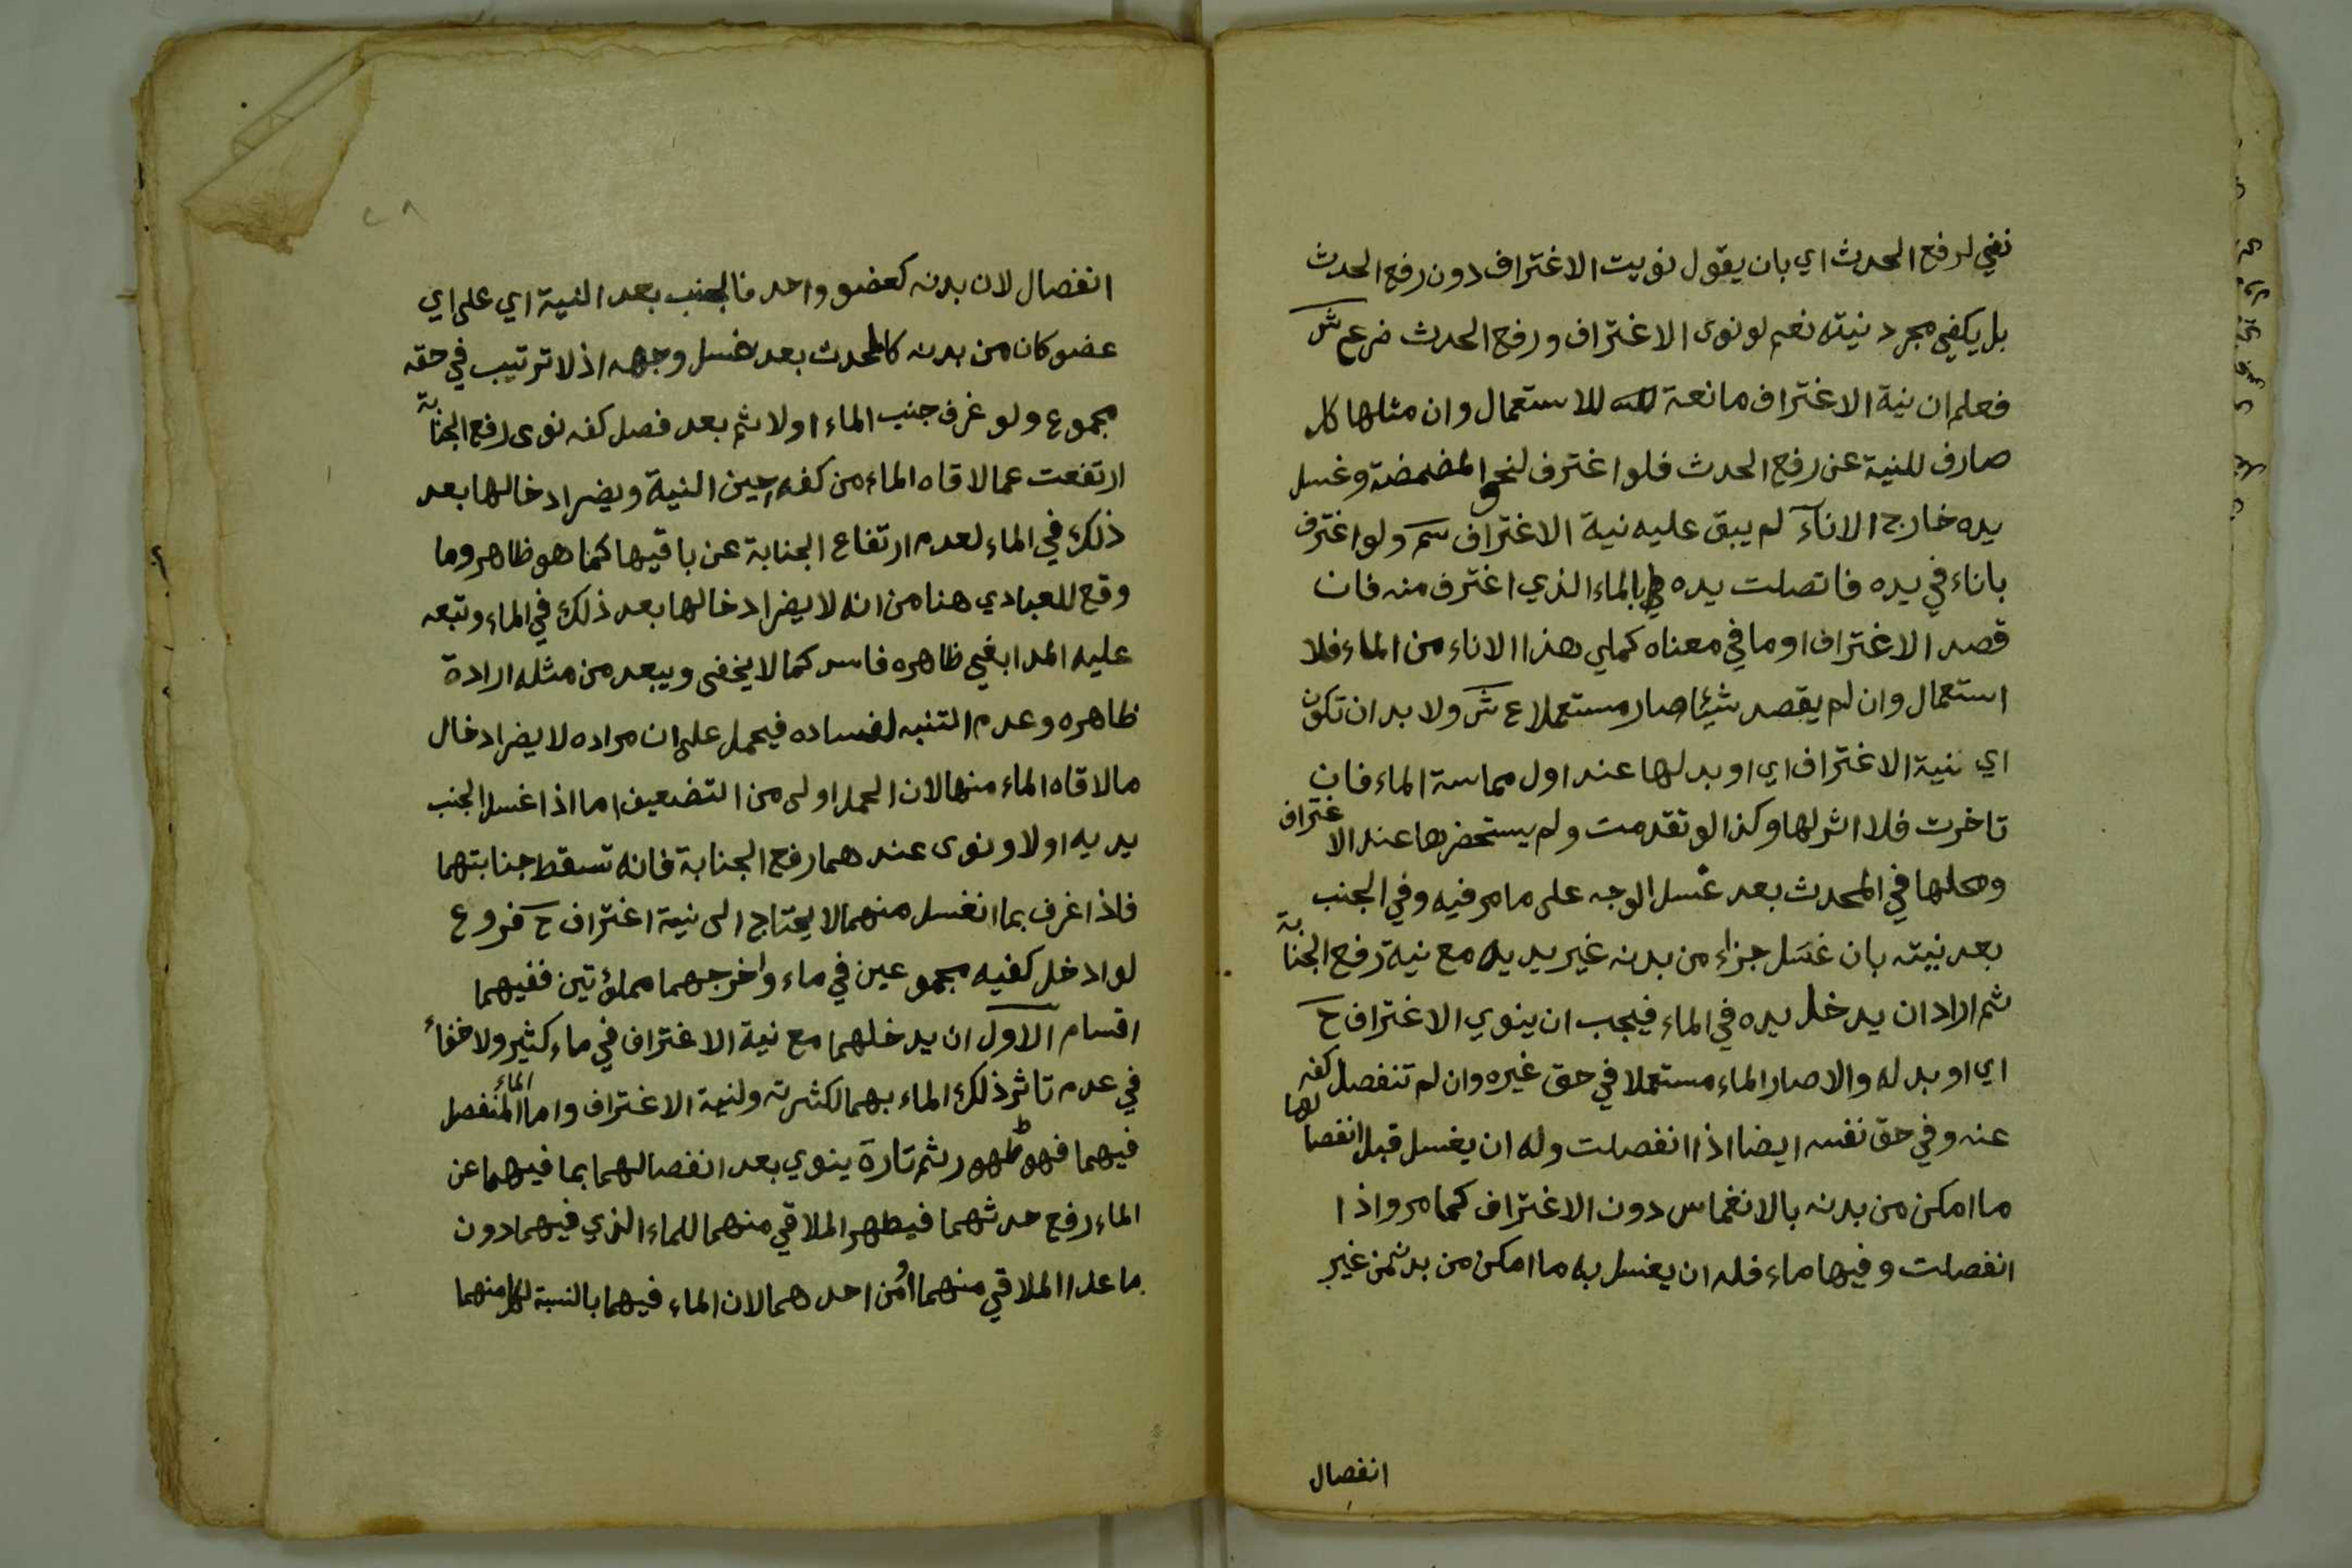 نفي لرفع الحدث اي بان يقول نويت الاغتراف دون رفع الحدث
بل يكفي مجرد نيته نعم لو نوى الاغتراف ورفع الحدث ضر ع ش
فعلم ان نية الاغتراف مانعة للاستعمال وان مثلها كل
صارف للنية عن رفع الحدث فلو اغترف لنحو المضمضة وغسل
يده خارج الاناء لم يبق عليه نية الاغتراف سم ولو اغترف
باناء في يده فاتصلت يده بالماء الذي اغترف منه فان
قصد الاغتراف او ما في معناه كملي هذا الاناء من الماء فلا
استعمال وان لم يقصد شيئا صار مستعملا ع ش ولا بد ان تكون
اي نية الاغتراف اي او بدلها عند اول مماسة الماء فان
تاخرت فلا اثر لها وكذا لو تقدمت ولم يستحضرها عند الاغتراف
ومحلها في المحدث بعد غسل الوجه على ما مر فيه وفي الجنب
بعد نيته بان غسل جزاء من بدنه غير يديه مع نية رفع الجنابة
ثم اراد ان يدخل يده في الماء فيجب ان ينوي الاغتراف ح
اي او بدله والا صار الماء مستعملا في حق غيره وان لم تنفصل كفه
عنه وفي حق نفسه ايضا اذا انفصلت وله ان يغسل قبل انفصالها
ما امكن من بدنه بالانغماس دون الاغتراف كما مر واذا
انفصلت وفيها ماء فله ان يغسل به ما امكن من بدنه من غير
انفصال
٢٨
انفصال لان بدنه كعضو واحد فالجنب بعد النية اي على اي
عضو كان من بدنه كالمحدث بعد غسل وجهه اذ لا ترتيب في حقه
مجموع ولو غرف جنب الماء اولا ثم بعد فصل كفه نوى رفع الجنابة
ارتفعت عما لاقاه الماء من كفه حين النية ويضر ادخالها بعد
ذلك في الماء لعدم ارتفاع الجنابة عن باقيها كما هو ظاهر وما
وقع للعبادي هنا من انه لا يضر ادخالها بعد ذلك في الماء وتبعه
عليه المدابغي ظاهره فاسد كما لا يخفى ويبعد من مثله ارادة
ظاهره وعدم التنبه لفساده فيحمل على ان مراده لا يضر ادخال
ما لاقاه الماء منها لان الحمل اولى من التضعيف اما اذا غسل الجنب
يديه اولا ونوى عندهما رفع الجنابة فانه تسقط جنابتهما
فاذا غرف بما انغسل منهما لا يحتاج الى نية اغتراف ح فروع
لو ادخل كفيه مجموعين في ماء واخرجهما مملؤتين ففيهما
اقسام الاول ان يدخلهما مع نية الاغتراف في ماء كثير ولا خفاء
في عدم تاثر ذلك الماء بهما لكثرته ولنية الاغتراف واما الماء المنفصل
فيهما فهو طهور ثم تارة ينوي بعد انفصالهما بما فيهما عن
الماء رفع حدثهما فيطهر الملاقي منهما للماء الذي فيهما دون
ما عدا الملاقي منهما او من احدهما لان الماء فيهما بالنسبة لكل منهما